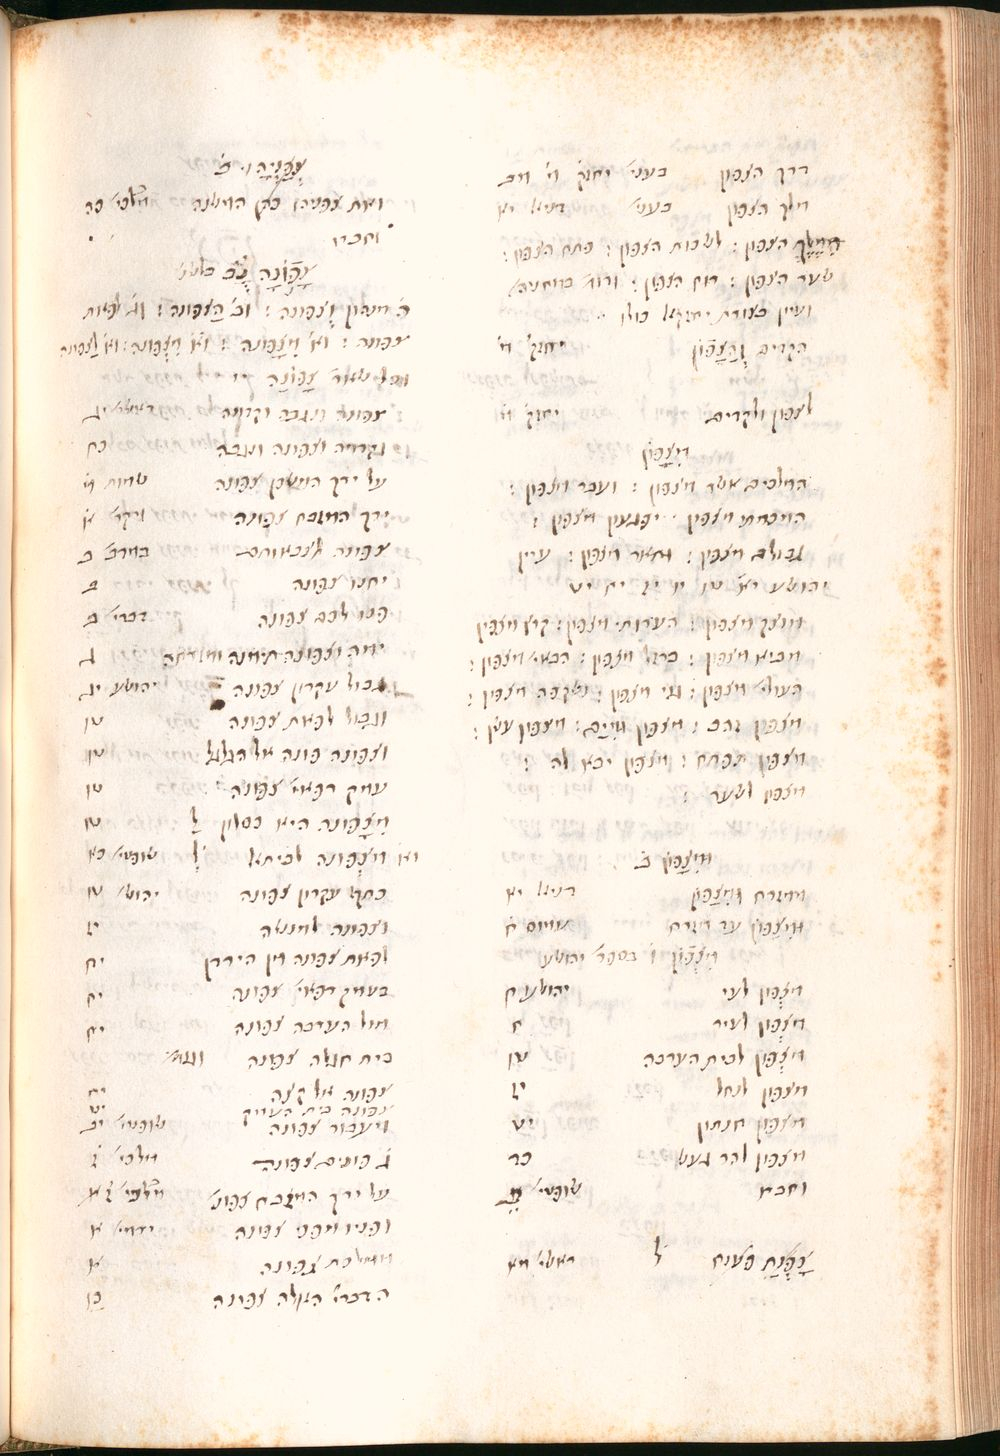 דרך הצפון בעני׳ יחזק׳ ח׳ מב
מלך הצפון בעני׳ דניא׳ יא
הצפון : לשכות הצפון : פתח הצפון :
שער הצפון : רוח הצפון :
ועיין בצורת יחזקאל כולו
הקדים וְהַצָפוֹן יחזק׳
לצפון ולקדים יחזק׳
מִצָפוֹן
המלכים אשר מצפון : ועבר מצפון :
המכתש מצפון יפגעון מצפון :
גבולם מצפון : ותאר מצפון : עיין
יהושע יא טו יז יח יט
מוצק מצפון : העירותי מצפון : קרץ מצפון
מביא מצפון : ברזל מצפון : הבאי׳ מצפון :
העולי׳ מצפון : גוי מצפון : נשקפה מצפון :
מצפון זהב : מצפון מַיִם : מצפון עשן :
מצפון תפתח : מצפון יבא לה :
מצפון לשער :
וּמִצָפוֹן ב׳
ממזרח וּמִצָפוֹן דניא׳ יא
וּמִצָפוֹן עד מזרח עמוס ח
מִצְפוֹן ו׳ בספר יהושע
מצְפון לעי יהושע ח
מצְפון לעיר ח
מצְפון לבית הערבה טו
מצפון לנחל יז
מצְפון חנתון יט
מצפון להר געש כד
וחברו שופטי׳ ב
צָפְנַת פענח ל׳ ראשי׳ מא
צְפַנְיָהוּ ב׳
ואת צפניהו כהן המשנה מלכי׳ כה
וחברו
צָפוֹנָה נ״ב
ה׳ וְצפונה : וב׳ הַצפונה : וג׳ לפאת
צפונה : וא׳ מִצָפונה : וא׳ מִצְפונה : וא׳ לַצפונה
וכל שאר׳ צָפוֹנָה
צפונה ונגבה וקדמה ראשי׳ יג
וקדמה וצפונה ונגבה כח
על ירך המשכן צפונה שמות
ירך המזבח צפונה ויקר׳ א
צפונה לצבאותם במדב׳ ב
יחנו צפונה
פנו לכם צפונה דברי׳ ב
ימה וצפונה תימנה ומזרחה ג
גבול עקרון צפונה יהושע יג
וגבול לפאת צפונה טו
וצפונה פונה אל הגלגל טו
עמק רפאי׳ צפונה טו
מִצָפונה היא כסלון ל׳ טו
וא׳ מִצְפונה לבית אל ל׳ שופטי׳ כא
כתף עקרון צפונה יהוש׳ טו
וצפונה למנשה יז
לפאת צפונה מן הירדן יח
בעמק רפאי׳ צפונה יח
מול הערבה צפונה יח
בית חגלה צפונה
צפונה אל קצה יח
צפונה בית העמק יט
ויעבור צפונה שופטי׳ יב
ג׳ פונים צפונה מלכי׳ ז
על ירך המזבח צפונ׳
ופניו מפני צפונה ירמי׳ א
ממלכת צפונה א
הדברי׳ האלה צפונה